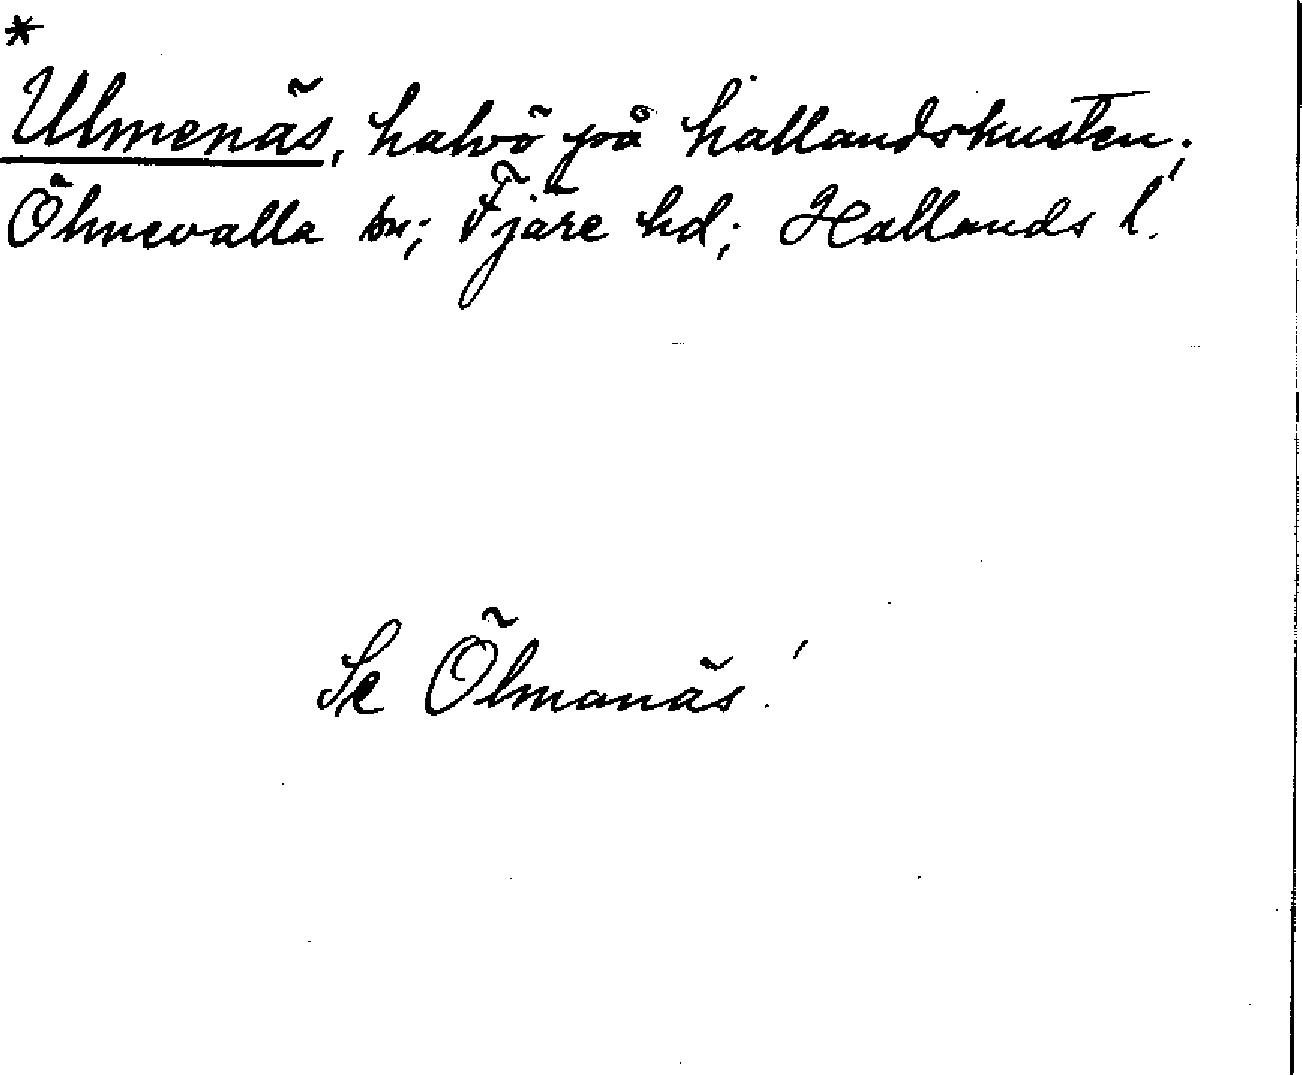 *
Ulmenäs, halvö på hallandskusten;
Ölmevalla sn; Fjäre hd; Hallands l.
Se Ölmanäs!